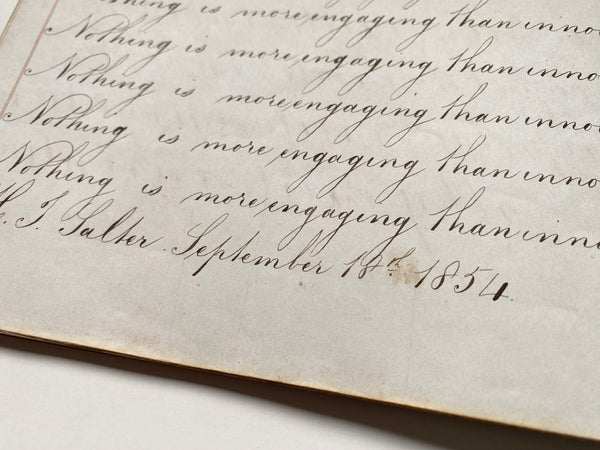 thing is more engaging than inno
Nothing is more engaging than inno
Nothing is more engaging than inno
Nothing is more engaging than inno
Nothing is more engaging than inno
T. Salter. September 18th 1854.